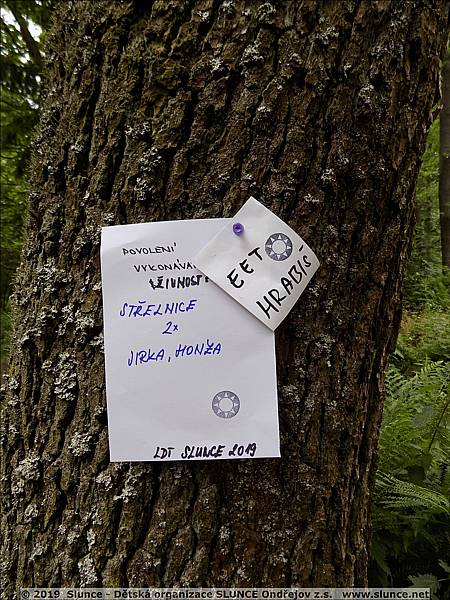 POVOLENÍ
VYKONÁVA
ŽIVNOST
STŘELNICE
2x
JIRKA, HONZA
LDT SLUNCE 2019
EET
HRABIŠ
© 2019 Slunce - Dětská organizace SLUNCE Ondřejov z.s. www.slunce.net